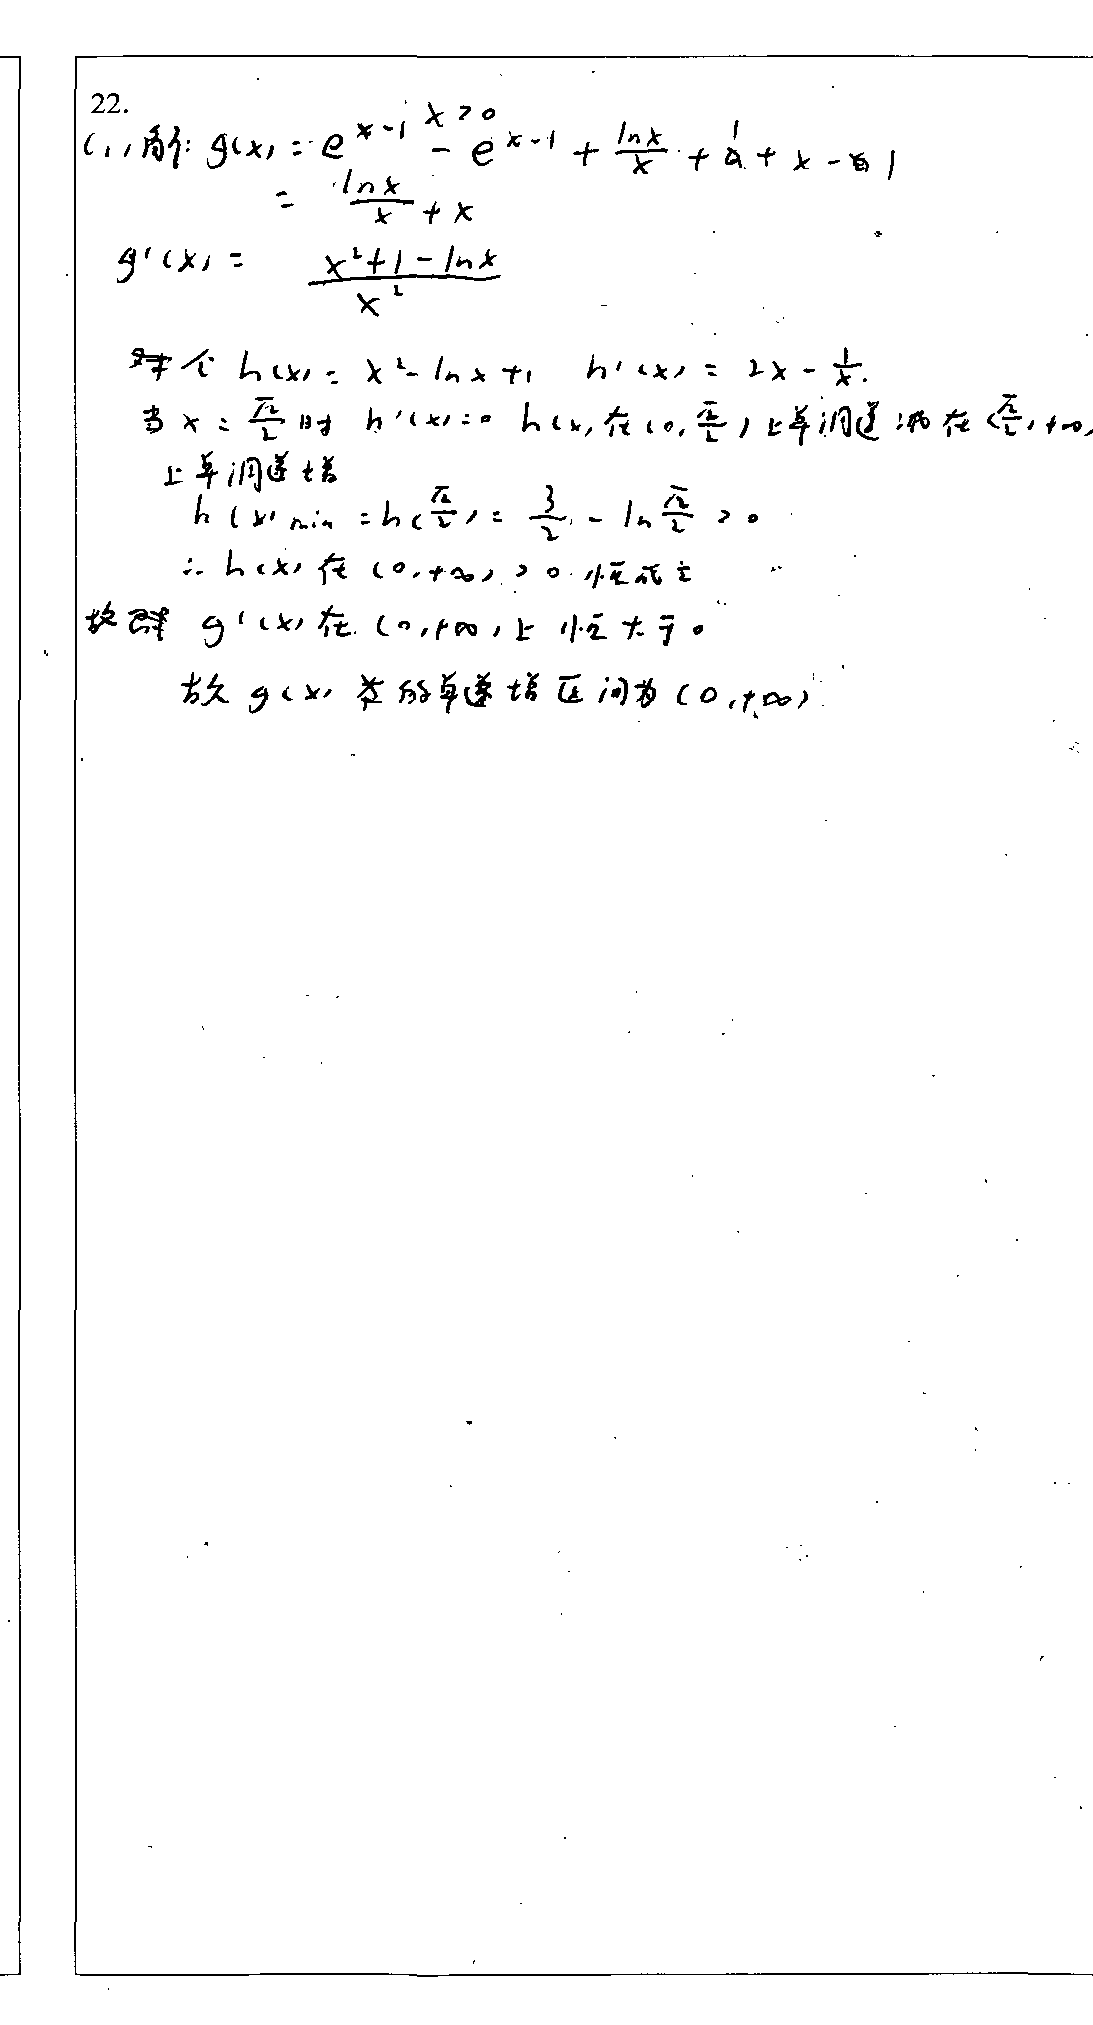 22.
(1)解: g(x) = e^{x-1} - e^{x-1} + \frac{lnx}{x} + 1 + x - 1  x>0
= \frac{lnx}{x} + x
g'(x) = \frac{x²+1-lnx}{x²}
令 h(x) = x²-lnx+1  h'(x) = 2x - \frac{1}{x}.
当 x = \frac{√2}{2} 时 h'(x)=0 h(x)在(0, \frac{√2}{2})上单调递减在(\frac{√2}{2}, +∞)
上单调递增
h(x)min = h(\frac{√2}{2}) = \frac{3}{2} - ln\frac{√2}{2} > 0
∴ h(x) 在 (0,+∞) > 0 恒成立
故 g'(x)在 (0,+∞)上 恒大于0
故 g(x) 的单递增区间为(0,+∞)